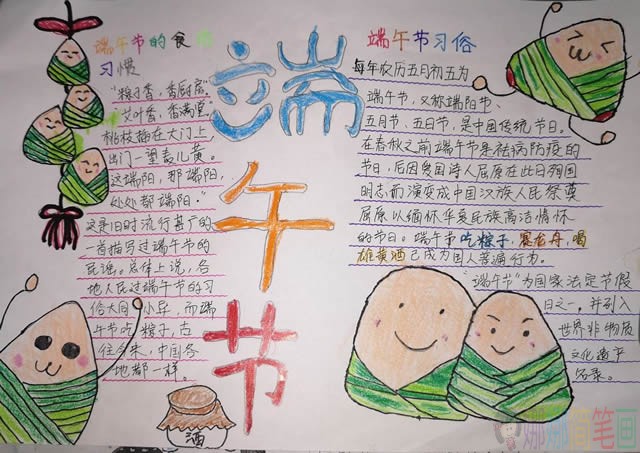 端午节的食俗
习惯
"粽子香,香厨房。
艾叶香,香满堂。
桃枝插在大门上
出门一望麦儿黄。
这端阳,那端阳,
处处都端阳。"
这是旧时流行甚广的
一首描写过端午节的
民谣。总体上说,各
地人民过端午节的习
俗大同小异,而端
午节吃粽子,古
往今来,中国各
地都一样。
端午节
酒
端午节习俗
每年农历五月初五为
端午节,又称端阳节、
五月节,五日节,是中国传统节日。
在春秋之前端午节是祛病防疫的
节日,后因爱国诗人屈原在此日殉国
明志而演变成中国汉族人民祭奠
屈原以缅怀华夏民族高洁情怀
的节日。端午节吃粽子,赛龙舟,喝
雄黄酒已成为国人普遍行为。
"端午节"为国家法定节假
日之一,并列入
世界非物质
文化遗产
名录。
娜娜简笔画